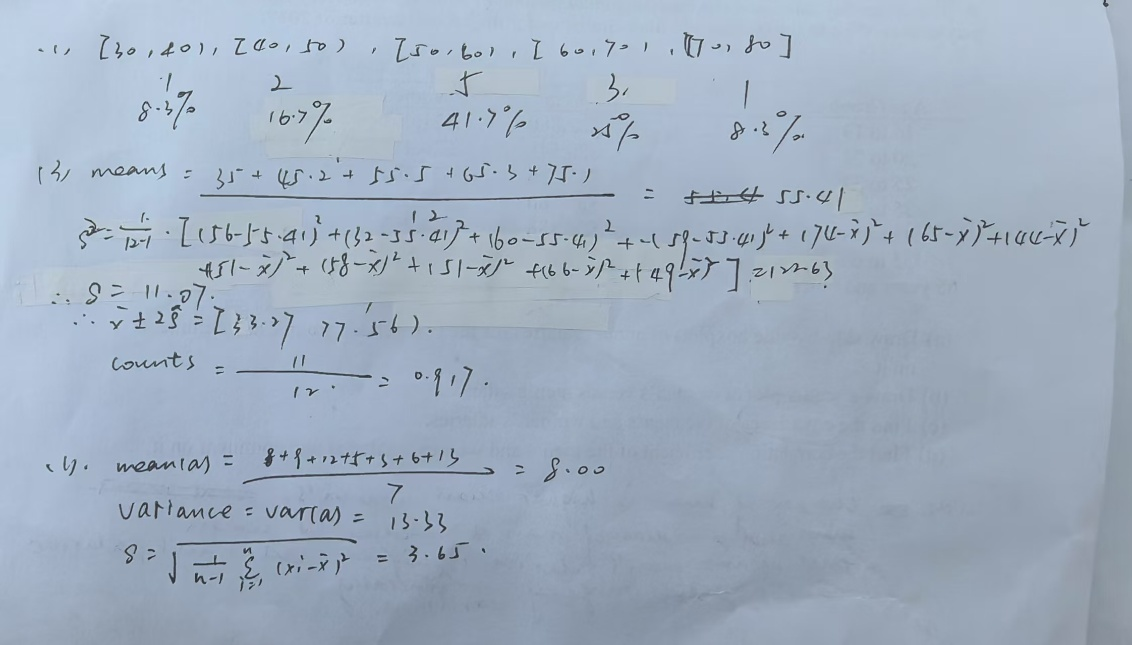 (1) [30,40), [40,50), [50,60), [60,70), [70,80]
1 2 5 3 1
8.3% 16.7% 41.7% 25% 8.3%
(3) means = 35+45·2+55·5+65·3+75·1 / 12 = 55.41
s² = 1/12-1 · [(56-55.41)²+(32-55.41)²+(60-55.41)²+(59-55.41)²+(74-x̄)²+(65-x̄)²+(44-x̄)²
+(51-x̄)²+(58-x̄)²+(51-x̄)²+(66-x̄)²+(49-x̄)²] = 122.63
∴ S = 11.07.
∴ x̄±2s = [33.27 77.56).
counts = 11/12 = 0.917.
mean(a) = 8+9+12+5+3+6+13 / 7 = 8.00
variance = var(a) = 13.33
s = √(1/n-1 Σ_{i=1}^{n} (xi-x̄)²) = 3.65.